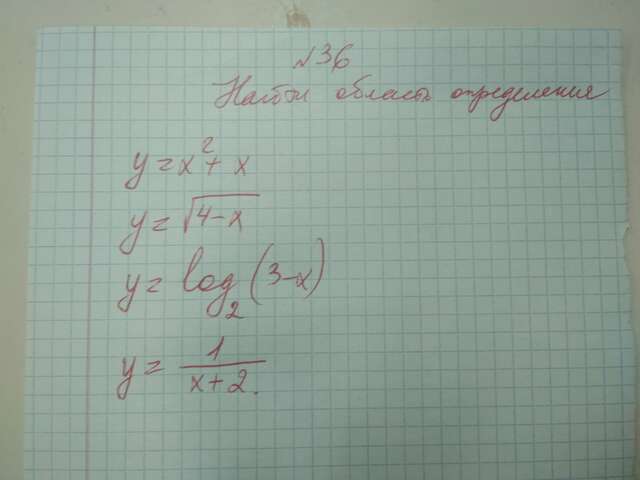 №36
Найти область определения
y = x² + x
y = √(4-x)
y = log₂(3-x)
y = 1/(x+2)